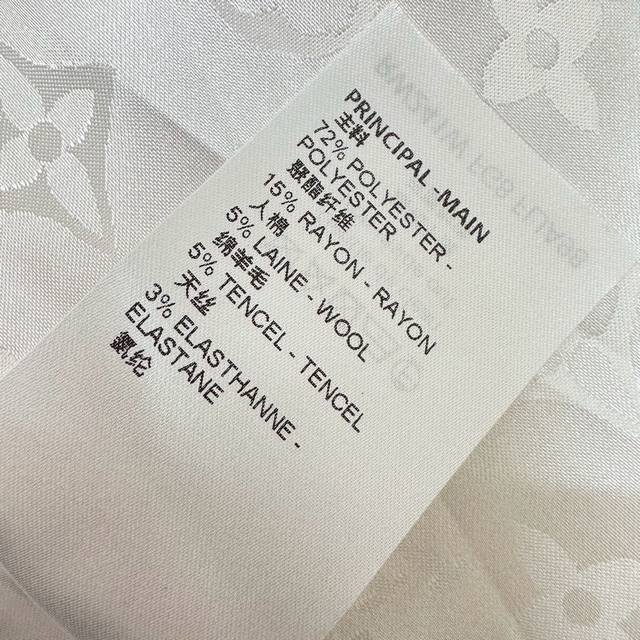 PRINCIPAL -MAIN
主料
72% POLYESTER -
POLYESTER
聚酯纤维
15% RAYON - RAYON
人棉
5% LAINE - WOOL
绵羊毛
5% TENCEL - TENCEL
天丝
3% ELASTHANNE -
ELASTANE
氨纶